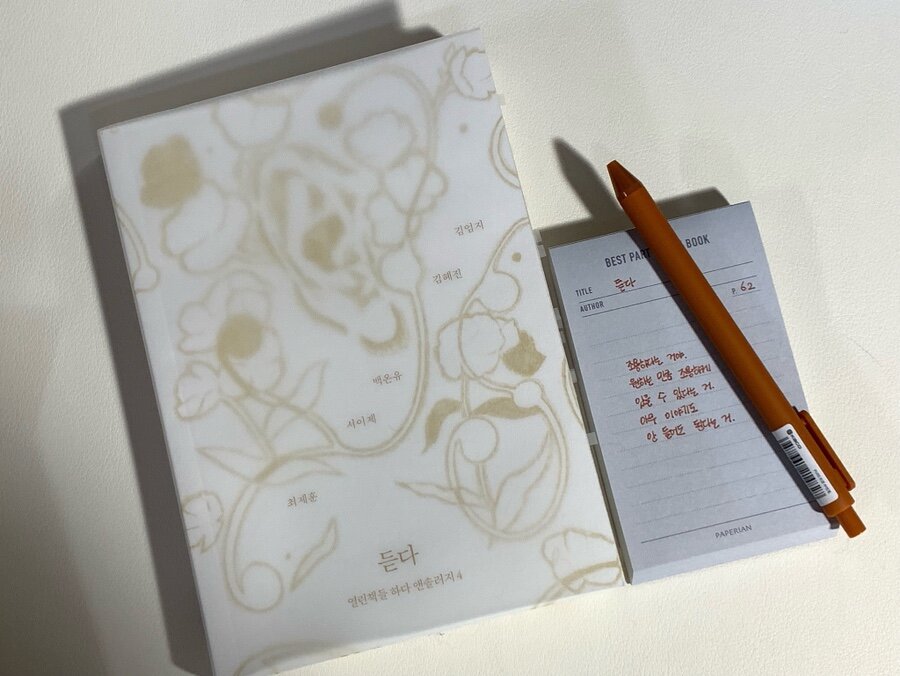 김엄지
김혜진
백온유
서이제
최제훈
듣다
열린책들 하다 앤솔러지 4
BEST PART BOOK
TITLE 듣다
AUTHOR P. 62
조용하다는 거야.
원하는 만큼 조용하게
있을 수 있다는 거.
아무 이야기도
안 들려도 된다는 거.
PAPERIAN